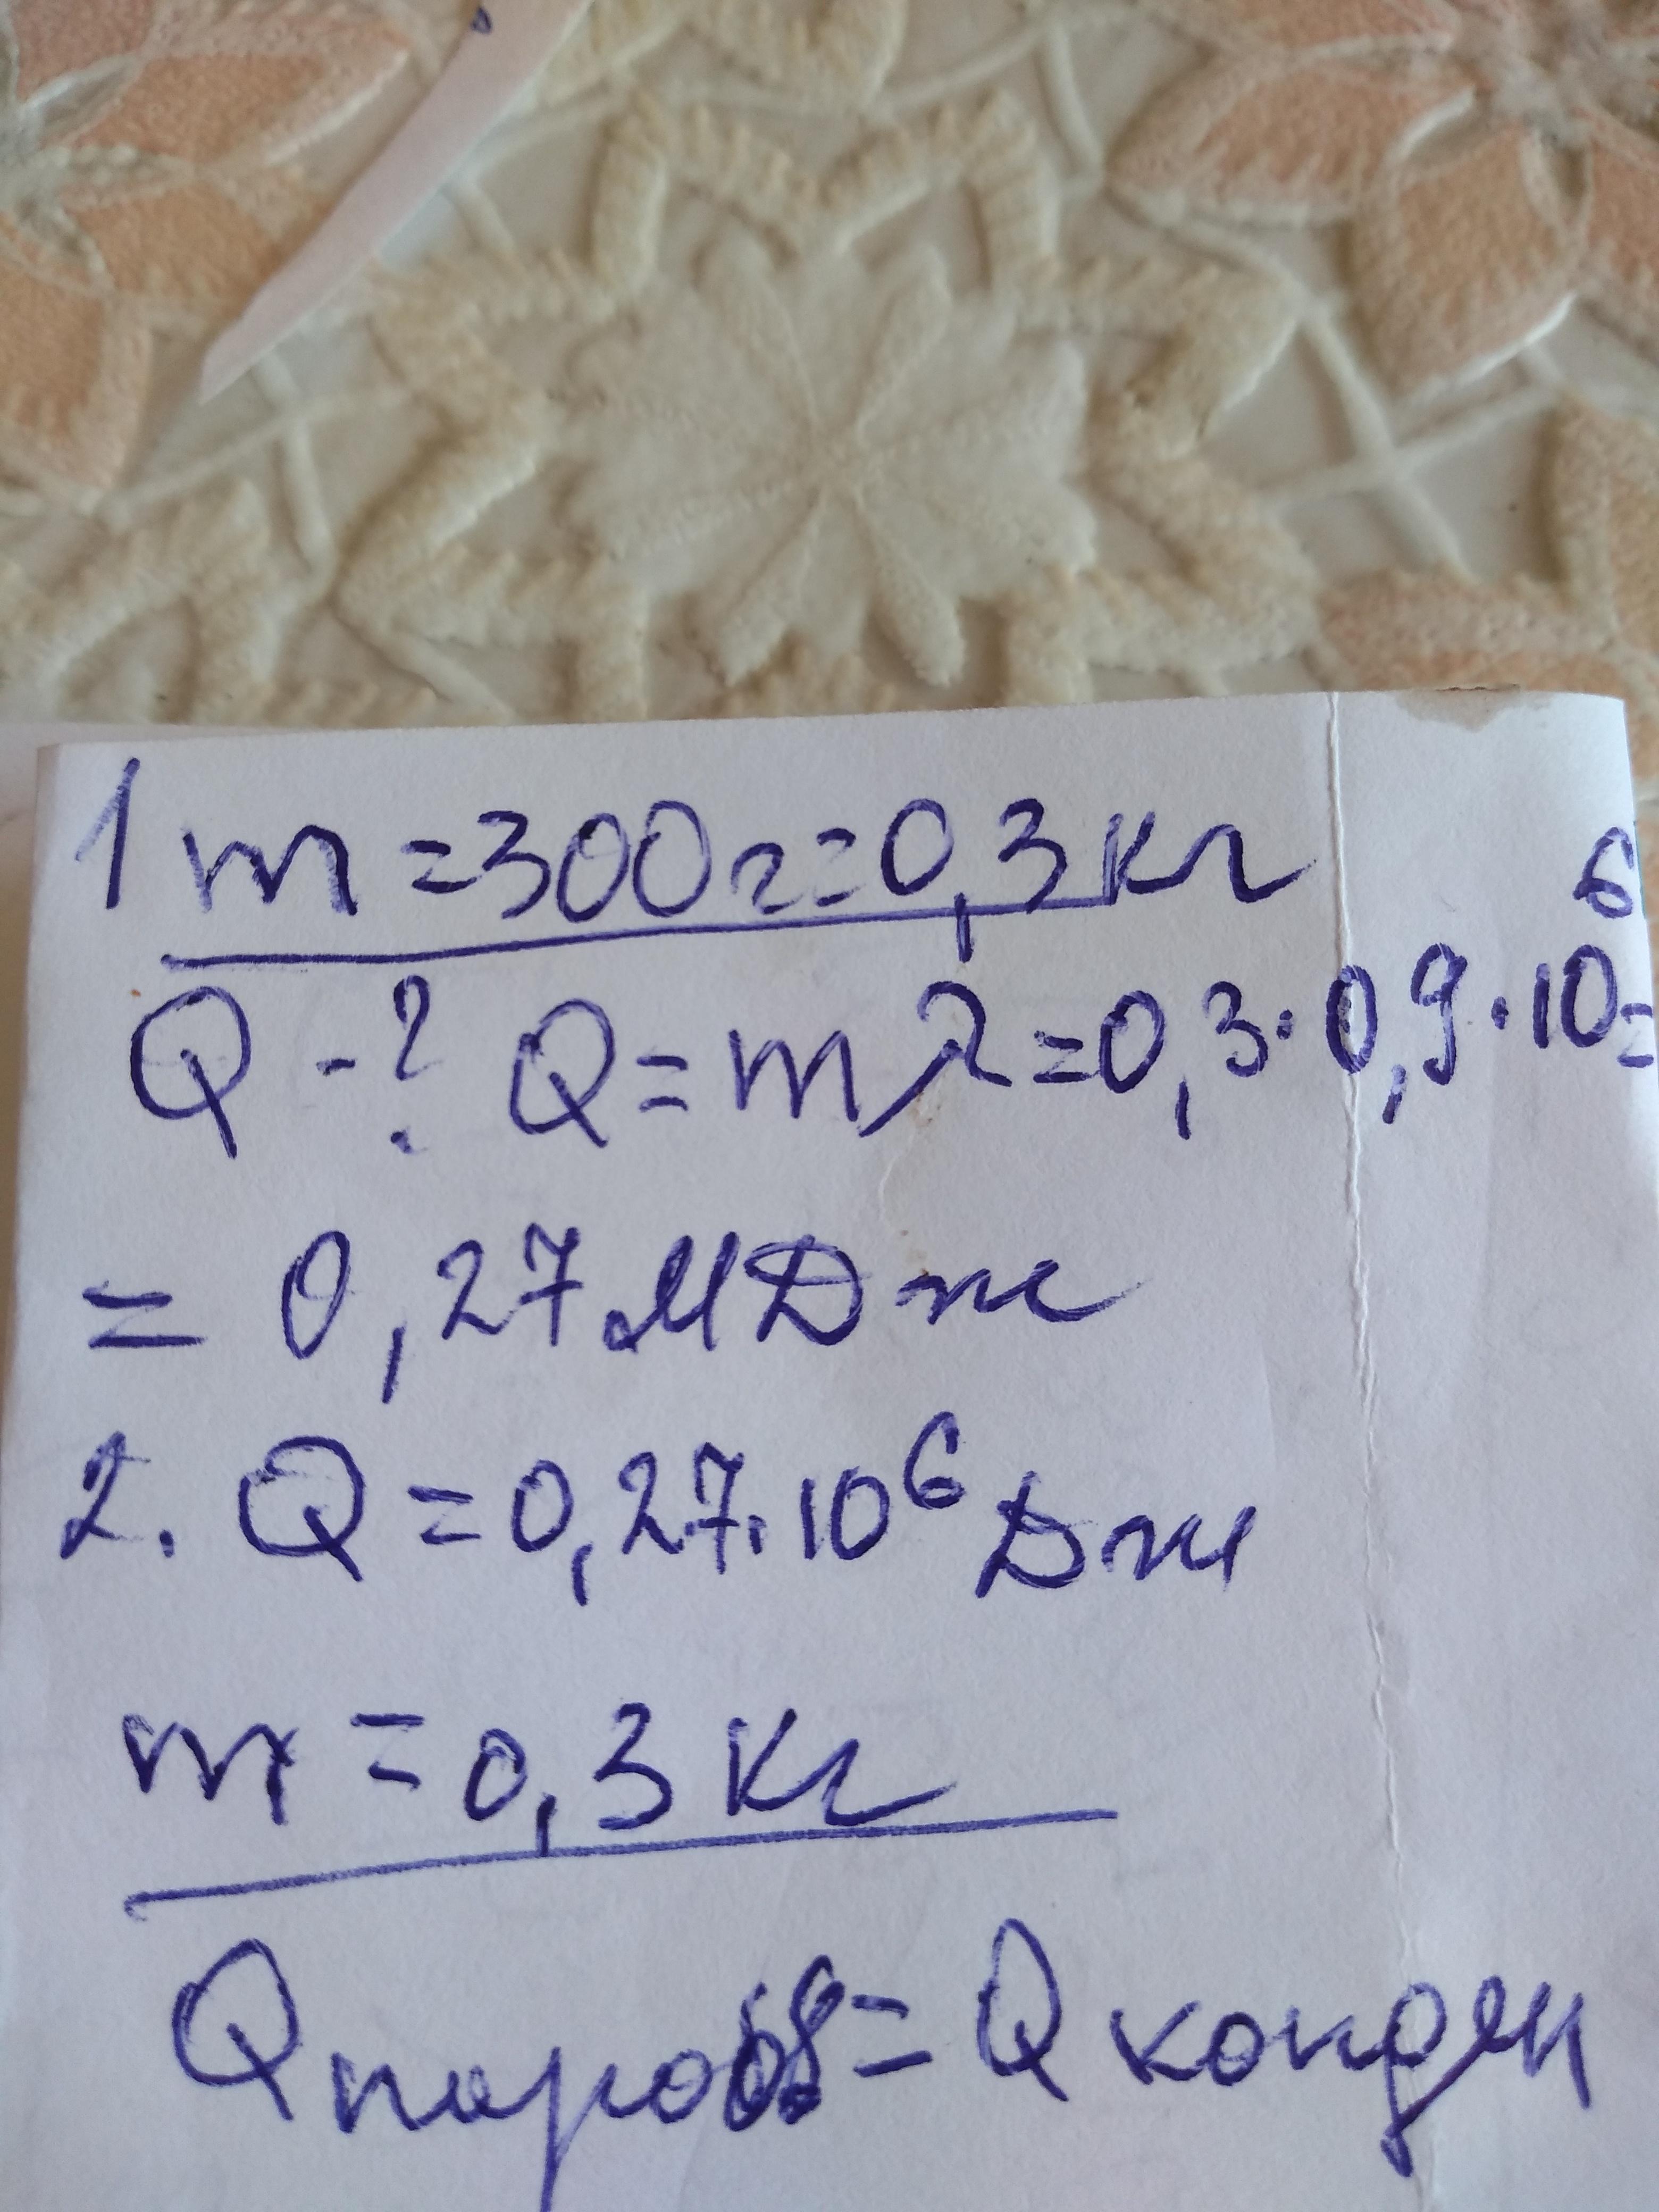 1 m = 300г = 0,3 кг
Q - ? Q = mλ = 0,3 · 0,9 · 10⁶ =
= 0,27 МДж
2. Q = 0,27 · 10⁶ Дж
m = 0,3 кг
Q = Q конден